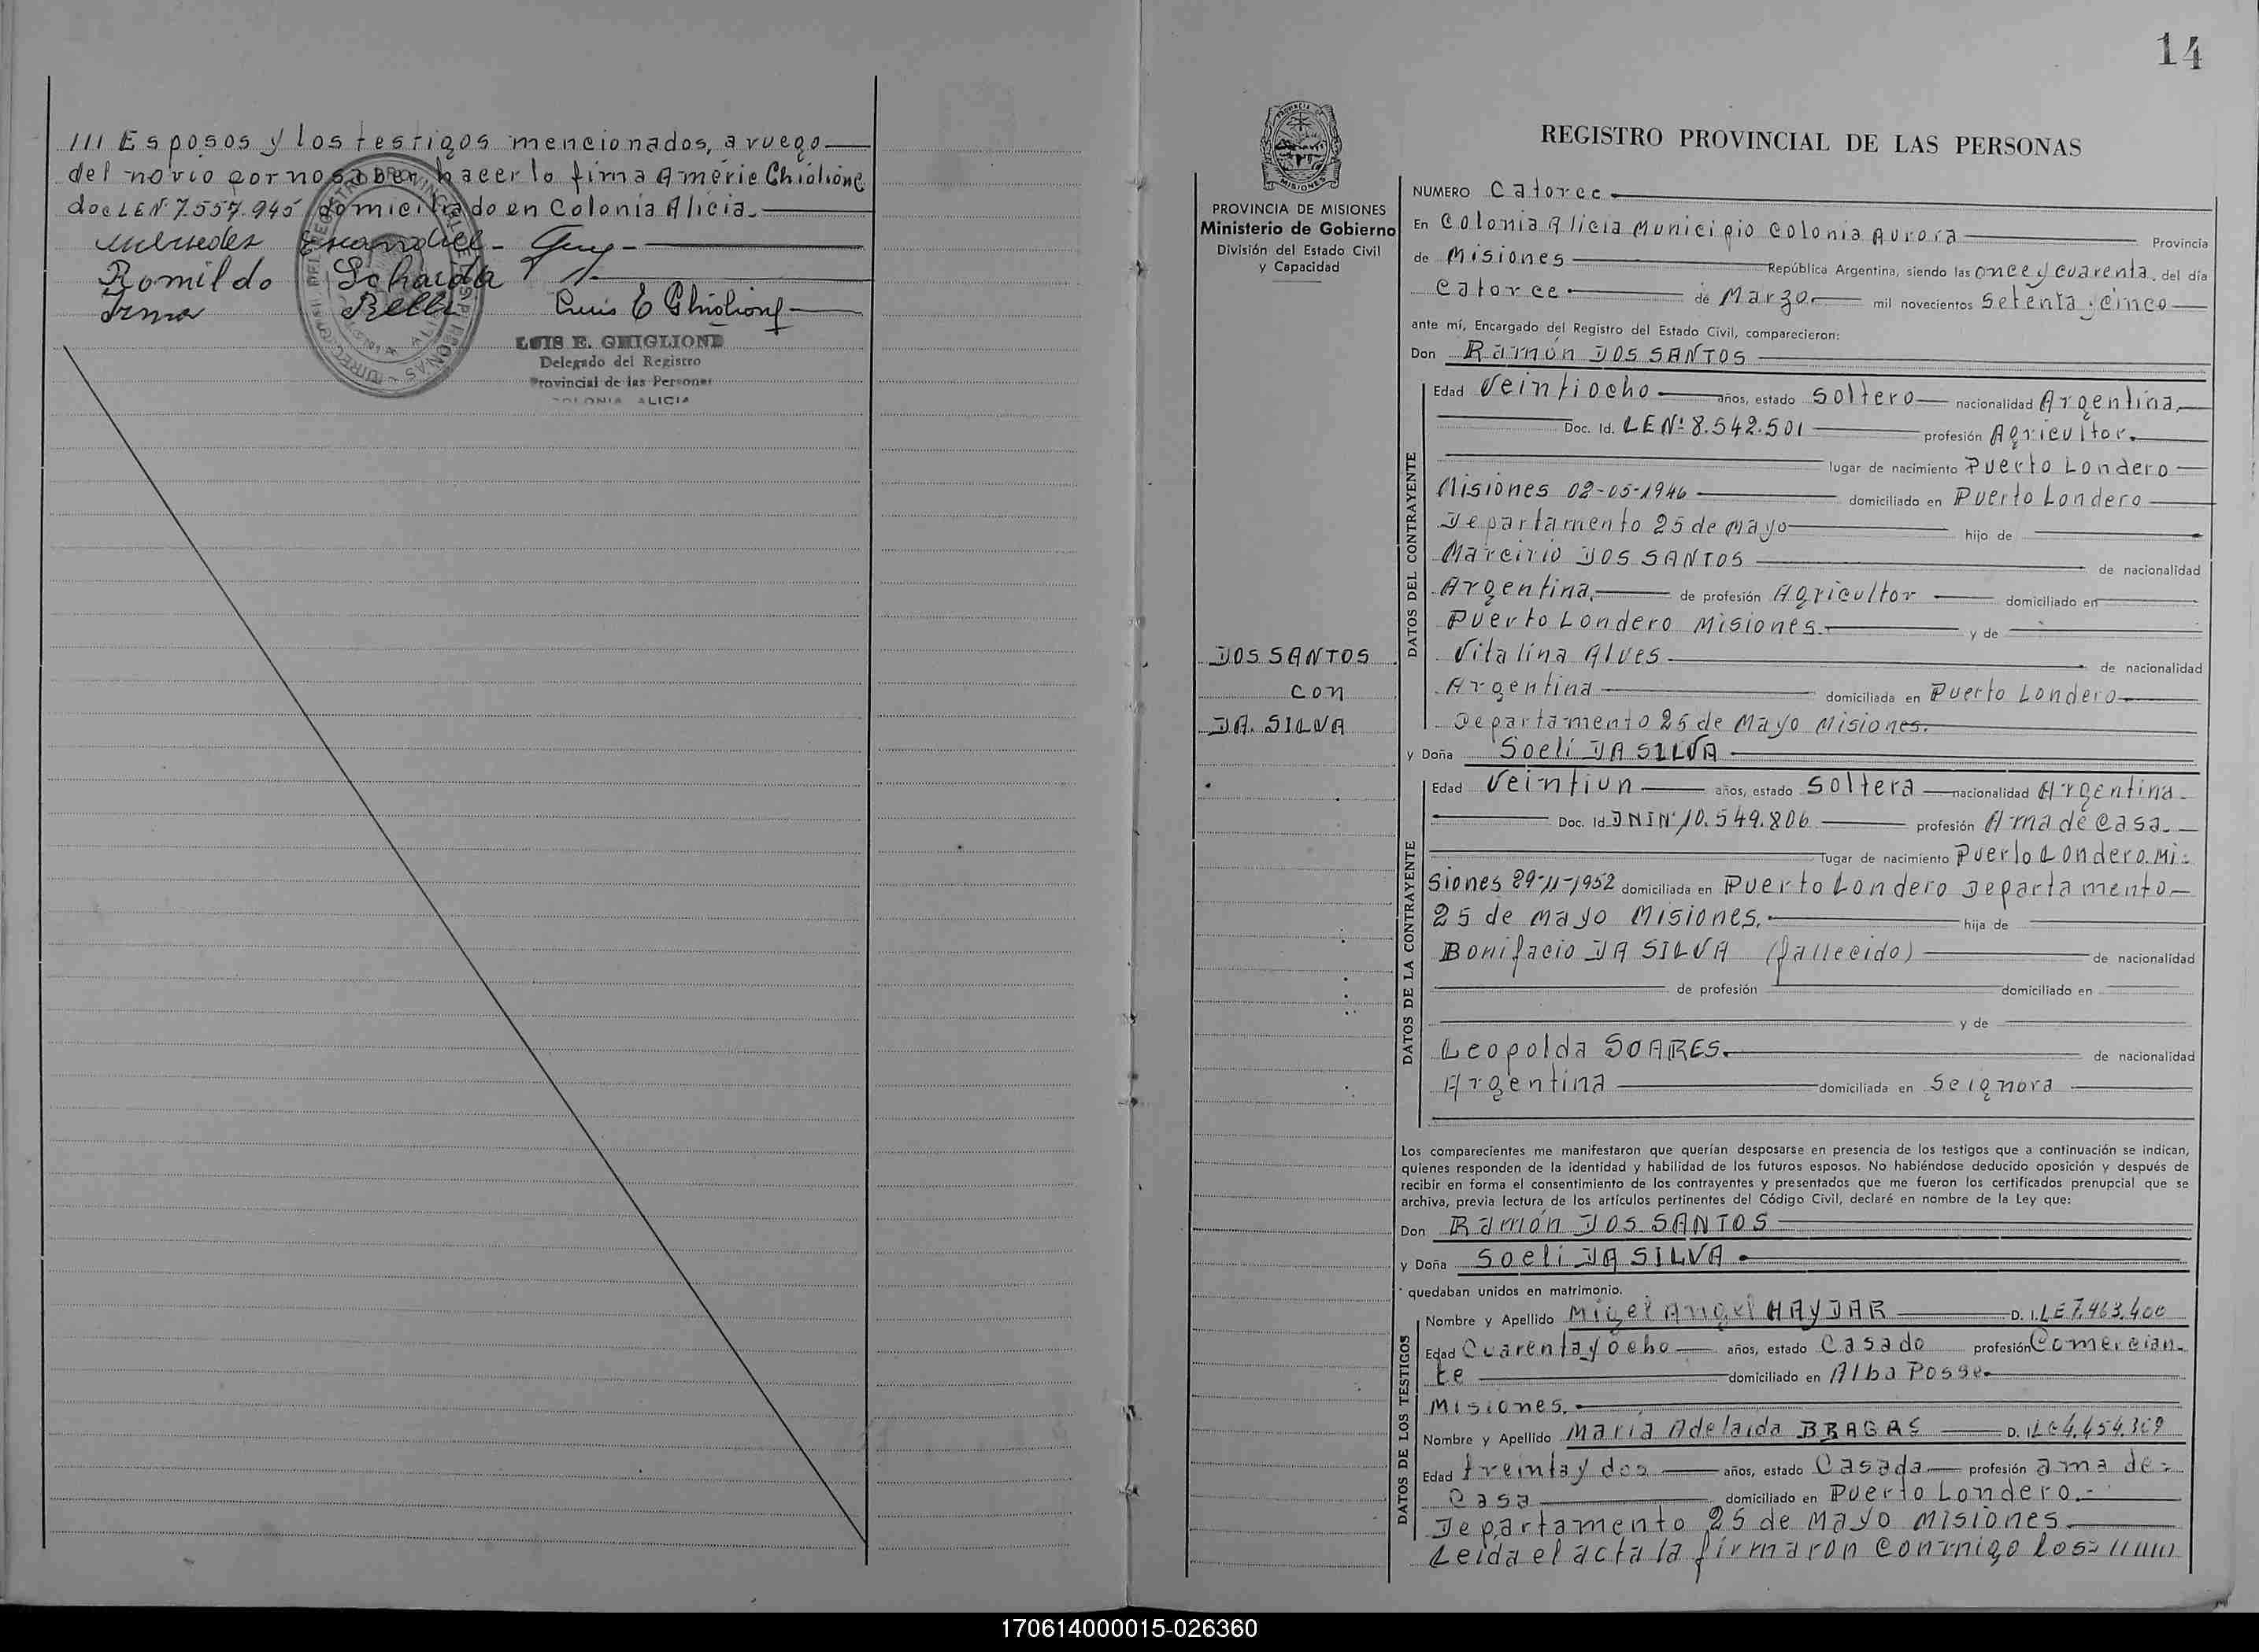 III Esposos y los testigos mencionados, a ruego
del novio por no saber hacerlo firma Américo Ghiglione
doc LE Nº 7.557.945 domiciliado en Colonia Alicia.
Mercedes
Romildo Scharda
Irma Bella Luis E Ghiglione
LUIS E. GHIGLIONE
Delegado del Registro
Provincial de las Personas
COLONIA ALICIA
14
PROVINCIA DE MISIONES
Ministerio de Gobierno
División del Estado Civil
y Capacidad
DOS SANTOS
con
DA SILVA
REGISTRO PROVINCIAL DE LAS PERSONAS
NUMERO Catorce
En Colonia Alicia Municipio Colonia Aurora Provincia
de Misiones República Argentina, siendo las once y cuarenta. del día
Catorce de Marzo mil novecientos Setenta y cinco
ante mí, Encargado del Registro del Estado Civil, comparecieron:
Don Ramón DOS SANTOS
DATOS DEL CONTRAYENTE
Edad Veintiocho años, estado Soltero nacionalidad Argentina.
Doc. Id. LE Nº 8.542.501 profesión Agricultor.
lugar de nacimiento Puerto Londero
Misiones 02-05-1946 domiciliado en Puerto Londero
Departamento 25 de Mayo hijo de
Marcirio DOS SANTOS de nacionalidad
Argentina. de profesión Agricultor domiciliado en
Puerto Londero Misiones. y de
Vitalina Alves de nacionalidad
Argentina domiciliada en Puerto Londero
Departamento 25 de Mayo Misiones.
y Doña Soeli DA SILVA
DATOS DE LA CONTRAYENTE
Edad Veintiun años, estado Soltera nacionalidad Argentina.
Doc. Id. DNI Nº 10.549.806 profesión Ama de casa.
lugar de nacimiento Puerto Londero. Mi-
siones 29-11-1952 domiciliada en Puerto Londero Departamento
25 de Mayo Misiones. hija de
Bonifacio DA SILVA (fallecido) de nacionalidad
de profesión domiciliado en
y de
Leopolda SOARES. de nacionalidad
Argentina domiciliada en Seignora
Los comparecientes me manifestaron que querían desposarse en presencia de los testigos que a continuación se indican,
quienes responden de la identidad y habilidad de los futuros esposos. No habiéndose deducido oposición y después de
recibir en forma el consentimiento de los contrayentes y presentados que me fueron los certificados prenupcial que se
archiva, previa lectura de los artículos pertinentes del Código Civil, declaré en nombre de la Ley que:
Don Ramón DOS SANTOS
y Doña Soeli DA SILVA
quedaban unidos en matrimonio.
DATOS DE LOS TESTIGOS
Nombre y Apellido Migel Angel HAYDAR D. I. LE 7.463.400
Edad Cuarenta y ocho años, estado Casado profesión Comercian-
te domiciliado en Alba Posse
Misiones.
Nombre y Apellido Maria Adelaida BRAGAS D. I. LC 4.454.369
Edad treinta y dos años, estado Casada profesión ama de-
Casa domiciliado en Puerto Londero.
Departamento 25 de Mayo Misiones
Leida el acta la firmaron conmigo los
170614000015-026360